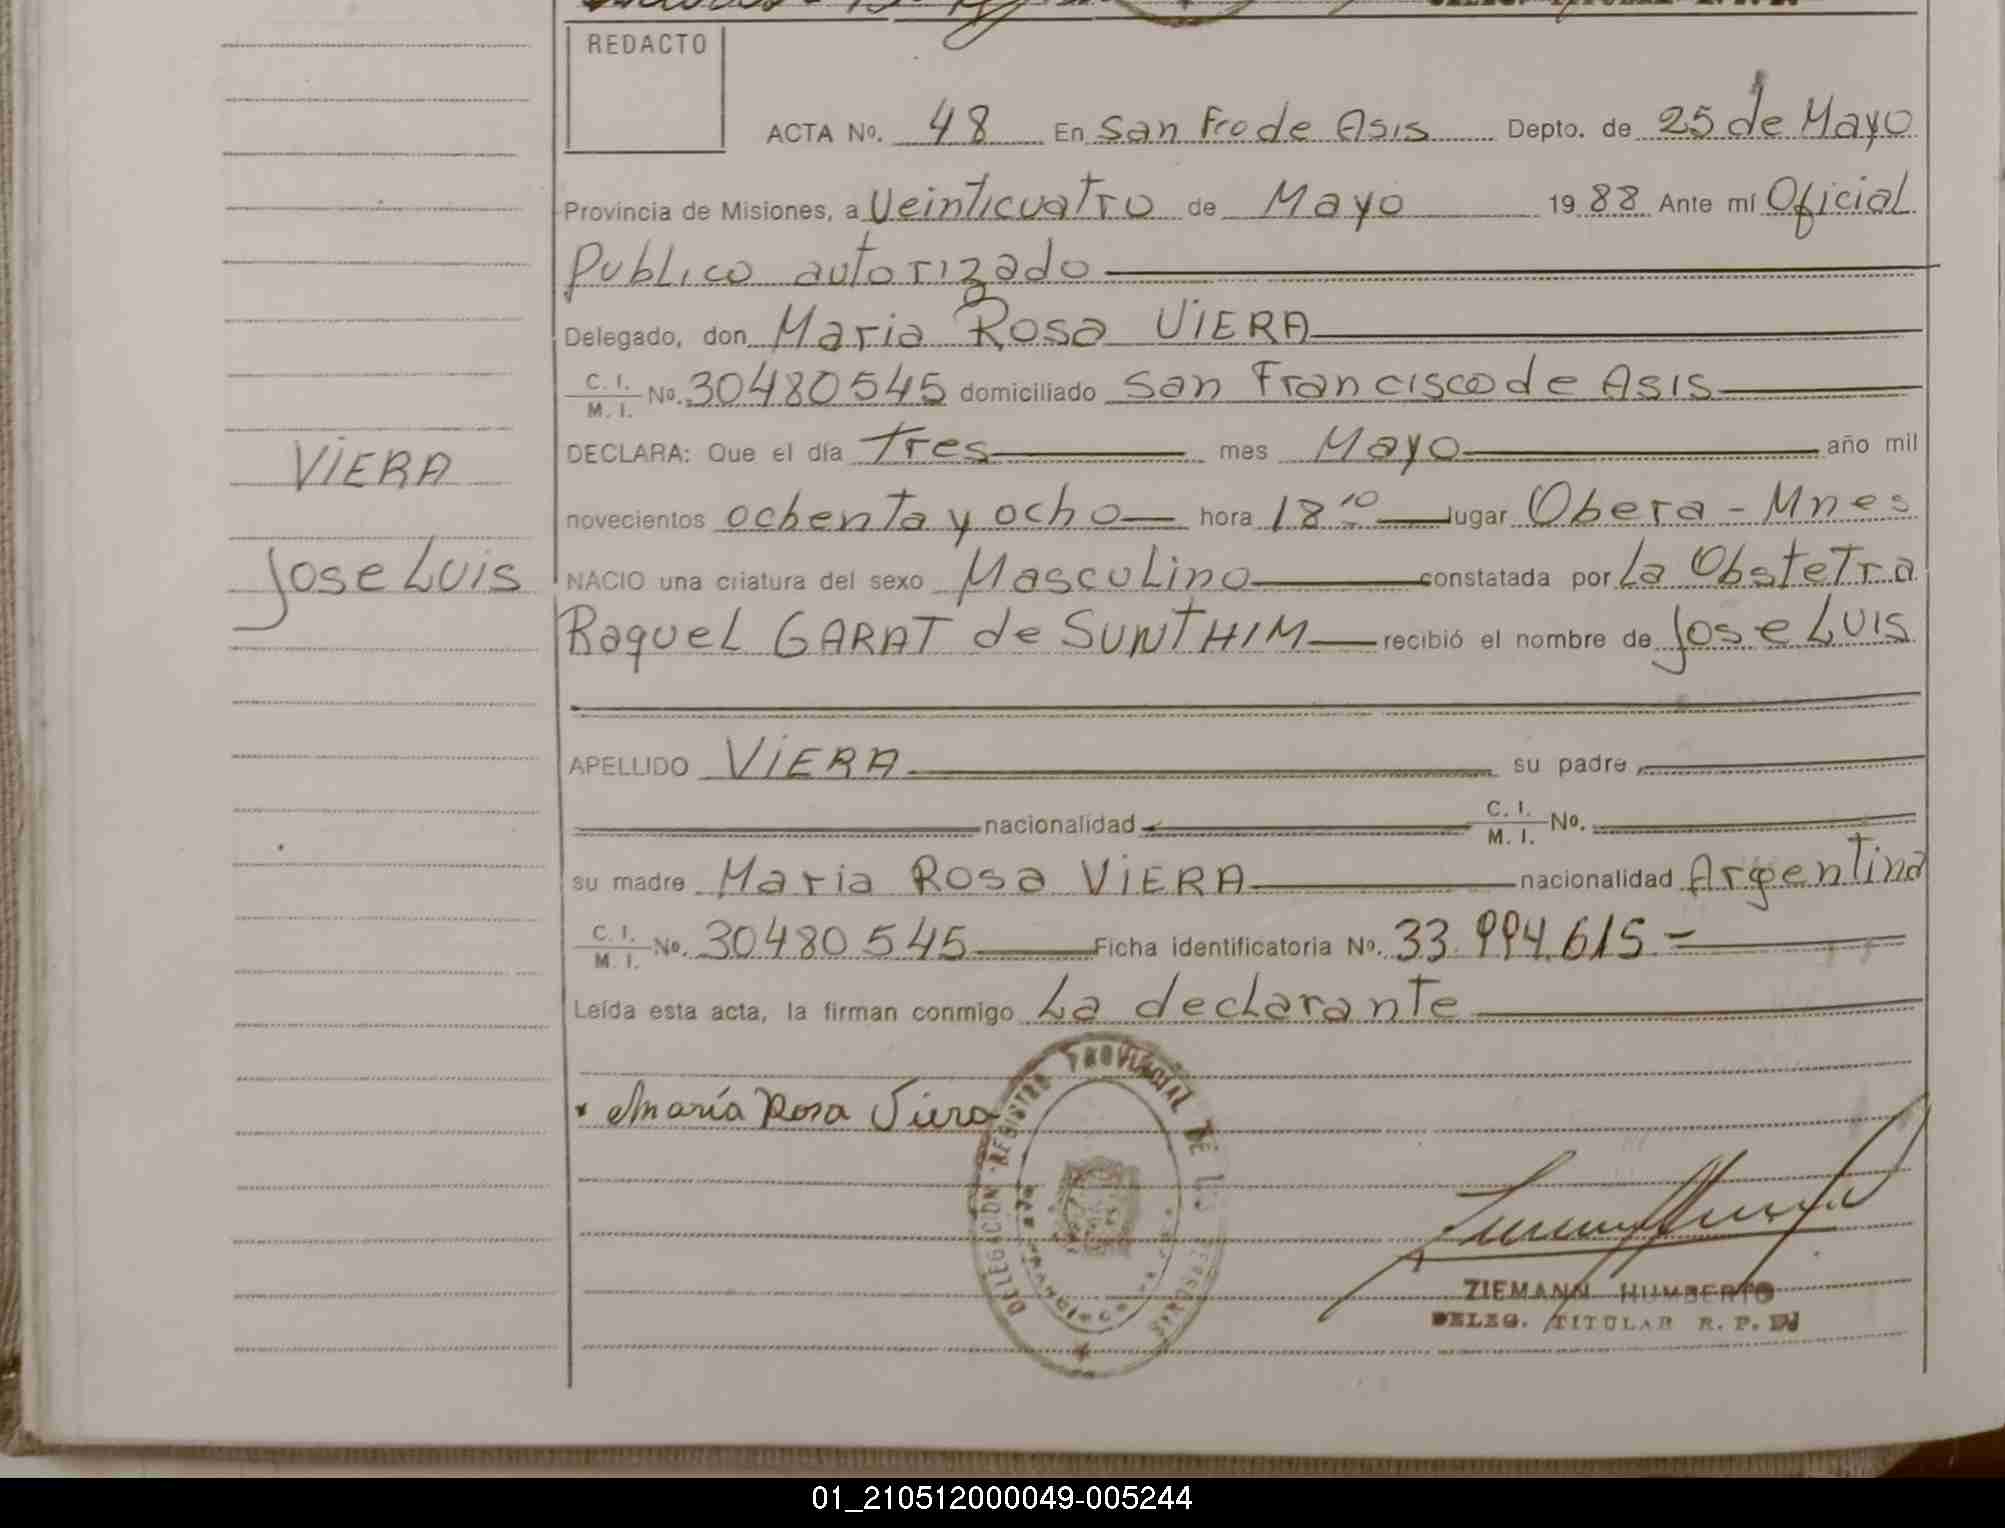 REDACTO
ACTA No. 48 En San Fco de Asis Depto. de 25 de Mayo
Provincia de Misiones, a Veinticuatro de Mayo 19 88 Ante mí Oficial
Publico autorizado
Delegado, don Maria Rosa VIERA
C. I.
M. I. No. 30480545 domiciliado San Francisco de Asis
DECLARA: Que el día tres mes Mayo año mil
VIERA
novecientos ochenta y ocho hora 18 10 lugar Obera - Mnes
Jose Luis
NACIO una criatura del sexo Masculino constatada por La Obstetra
Raquel GARAT de SUNTHIM recibió el nombre de Jose Luis
APELLIDO VIERA su padre
nacionalidad C. I. M. I. No.
su madre Maria Rosa VIERA nacionalidad Argentina
C. I.
M. I. No. 30480545 Ficha identificatoria No. 33.994.615 -
Leída esta acta, la firman conmigo La declarante
María Rosa Viera
DELEGACION REGISTRO PROVINCIAL DE LAS PERSONAS
ZIEMANN HUMBERTO
DELEG. TITULAR R. P. P.
01_210512000049-005244